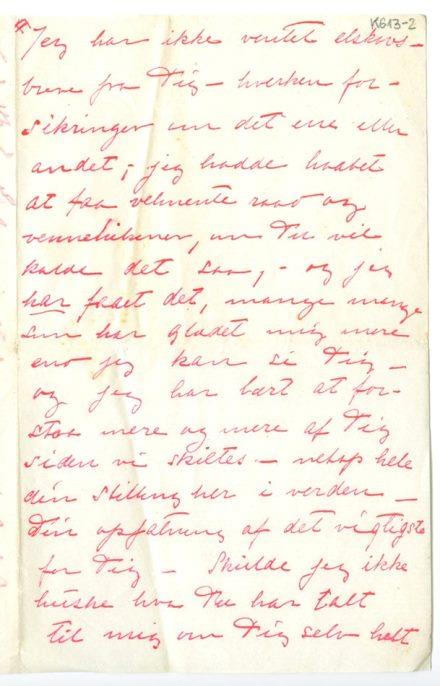 K613-2
Jeg har ikke ventet elskovs-
breve fra Dig – hverken for-
sikringer om det ene eller
andet; jeg havde haabet
at faa velmente raad og
vennehilsener, om Du vil
kalde det saa, - og jeg
har faaet det, mange mange
som har glædet mig mere
end jeg kan si Dig –
og jeg har lært at for-
staa mere og mere af Dig
siden vi skiltes – netop hele
din stilling her i verden –
Din opfatning af det vigtigste
for Dig – Skulde jeg ikke
huske hva Du har talt
til mig om Dig selv helt